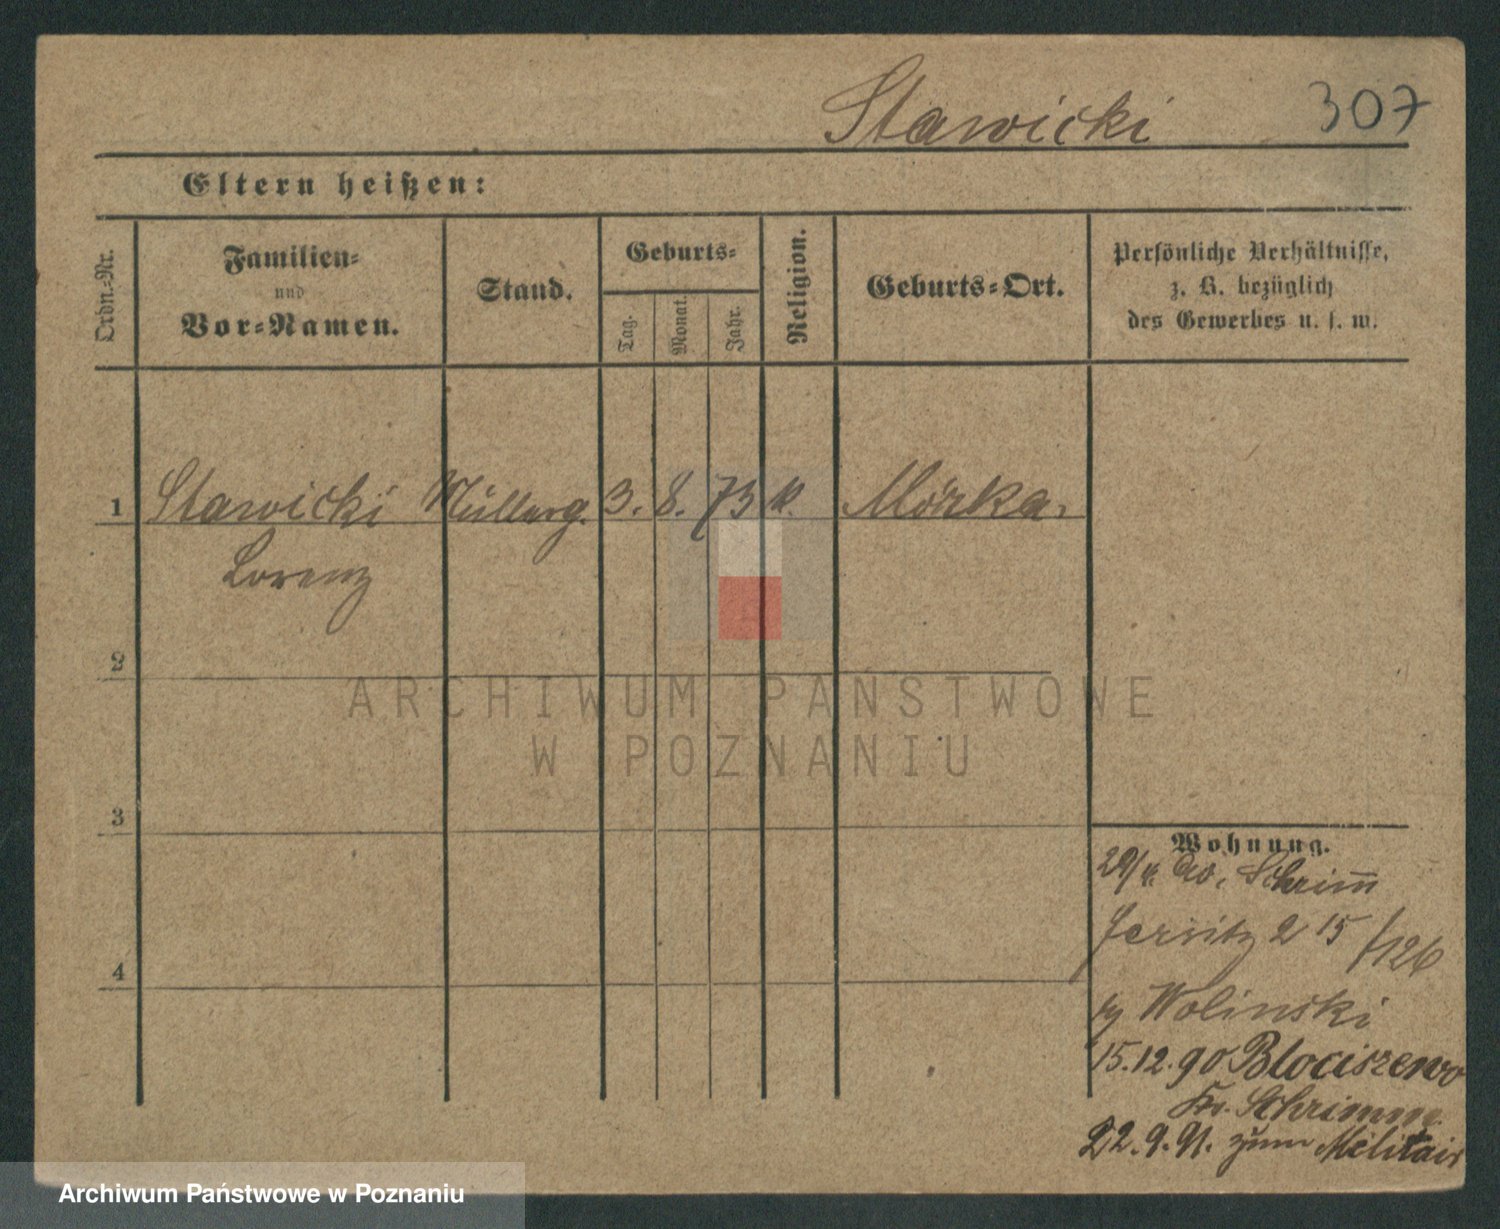 Stawicki 307
Eltern heißen:
Ordn.-Nr.
Familien-
und
Vor-Namen.
Stand.
Geburts-
Tag.
Monat.
Jahr.
Religion.
Geburts-Ort.
Persönliche Verhältnisse,
z. B. bezüglich
des Gewerbes u. s. w.
1 Stawicki Müllerg. 3. 8. 73 k. Mórka.
Lorenz
2
ARCHIWUM PAŃSTWOWE
W POZNANIU
3
Wohnung.
Schrimm
4
Jersitz 2 15/126
Wolinski
15.12.90 Blociszewo
Kr. Schrimm
22.9.91. zum Militair
Archiwum Państwowe w Poznaniu